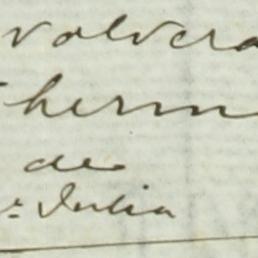 volvera
herm
de
Julia